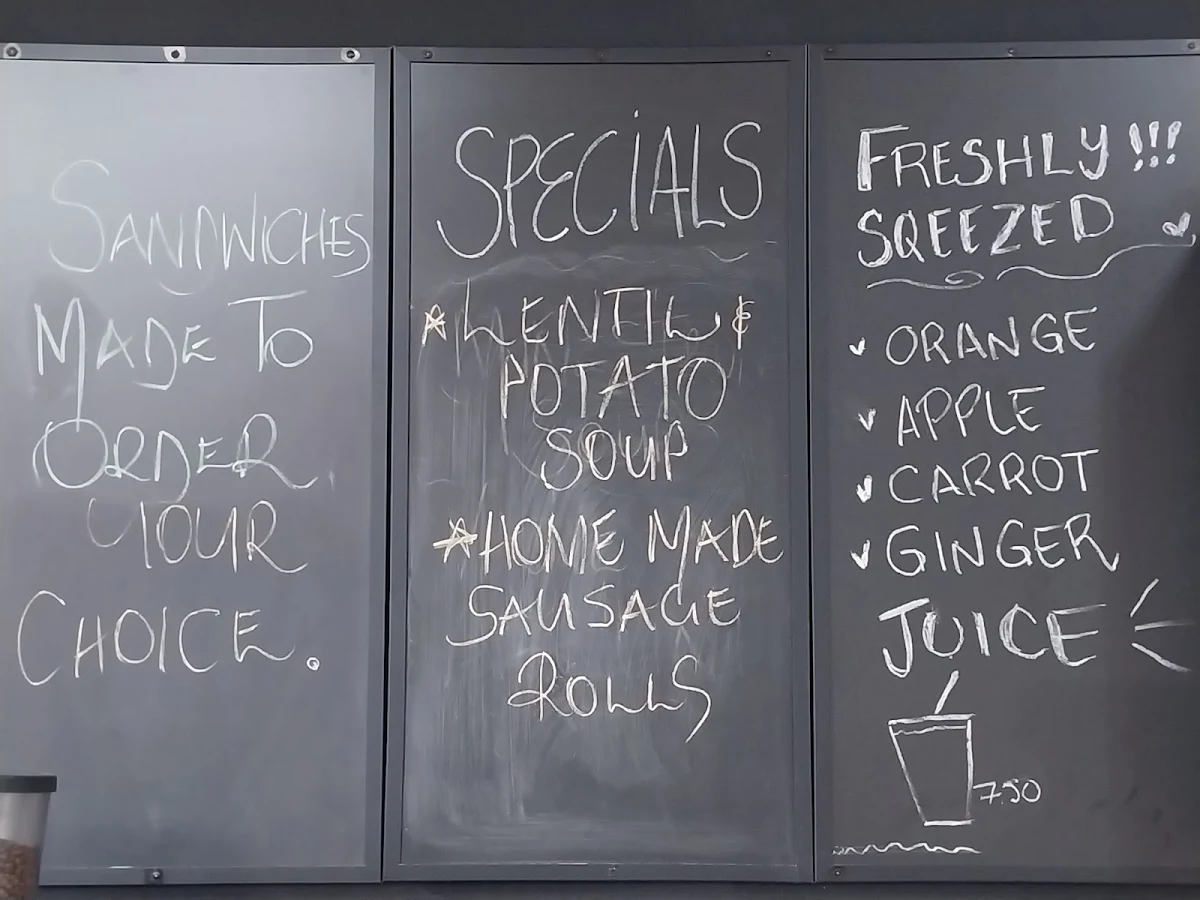 SANDWICHES
MADE TO
ORDER
YOUR
CHOICE.
SPECIALS
LENTIL &
POTATO
SOUP
HOME MADE
SAUSAGE
ROLLS
FRESHLY !!!
SQEEZED
ORANGE
APPLE
CARROT
GINGER
JUICE
7.50